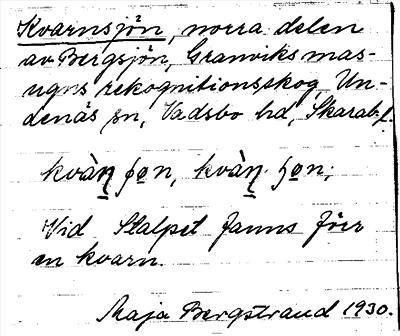 Kvarnsjön, norra delen
av Bergsjön, Granviks mas-
ugns rekognitionsskog, Un-
denäs sn, Vadsbo hd, Skarab. l.
kvàɳ ʂo̲n, kvàɳ ɧo̲n;
Vid Stalpet fanns förr
en kvarn.
Maja Bergstrand 1930.